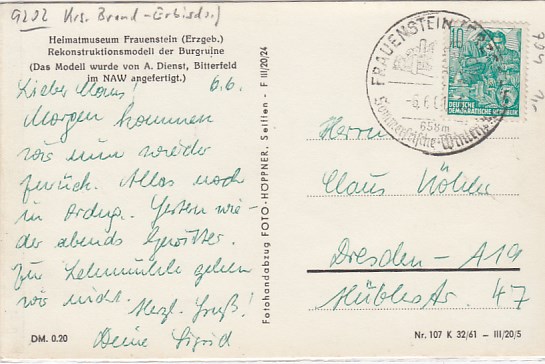 9202 Krs. Brand-Erbisdorf
Heimatmuseum Frauenstein (Erzgeb.)
Rekonstruktionsmodell der Burgruine
(Das Modell wurde von A. Dienst, Bitterfeld
im NAW angefertigt.)
6.6.
Lieber Claus!
Morgen kommen
wir nun wieder
zurück. Alles noch
in Ordng. Gestern wie-
der abends Gewitter.
Zur Lehmühle gehen
wir nicht.
Herzl. Gruß!
Deine Sigrid
DM. 0.20
Fotohandabzug FOTO-HÖPPNER, Seiffen - F III/20/24
FRAUENSTEIN (ERZGEB)
-6.6.61
658m
Sommerfrische - Wintersport
10
DEUTSCHE
DEMOKRATISCHE REPUBLIK
Herrn
Claus Köhler
Dresden-A19
Hüblerstr. 47
Nr. 107 K 32/61 - III/20/5